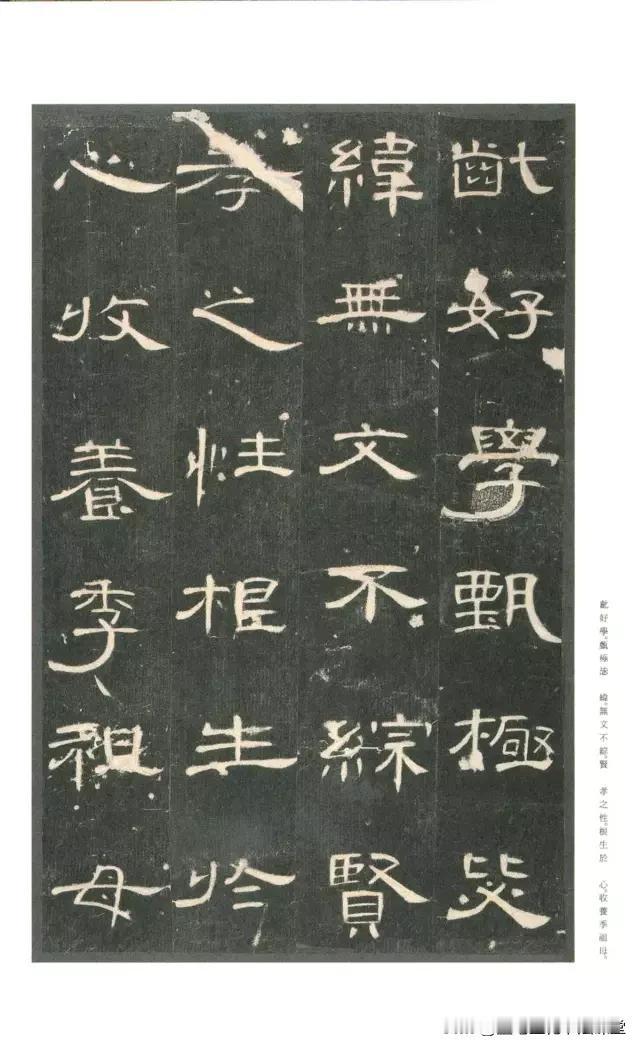 齔好學甄極毖
緯無文不綜賢
孝之性根生於
心收養季祖母
齔好學。甄極毖 緯。無文不綜。賢 孝之性。根生於 心。收養季祖母。